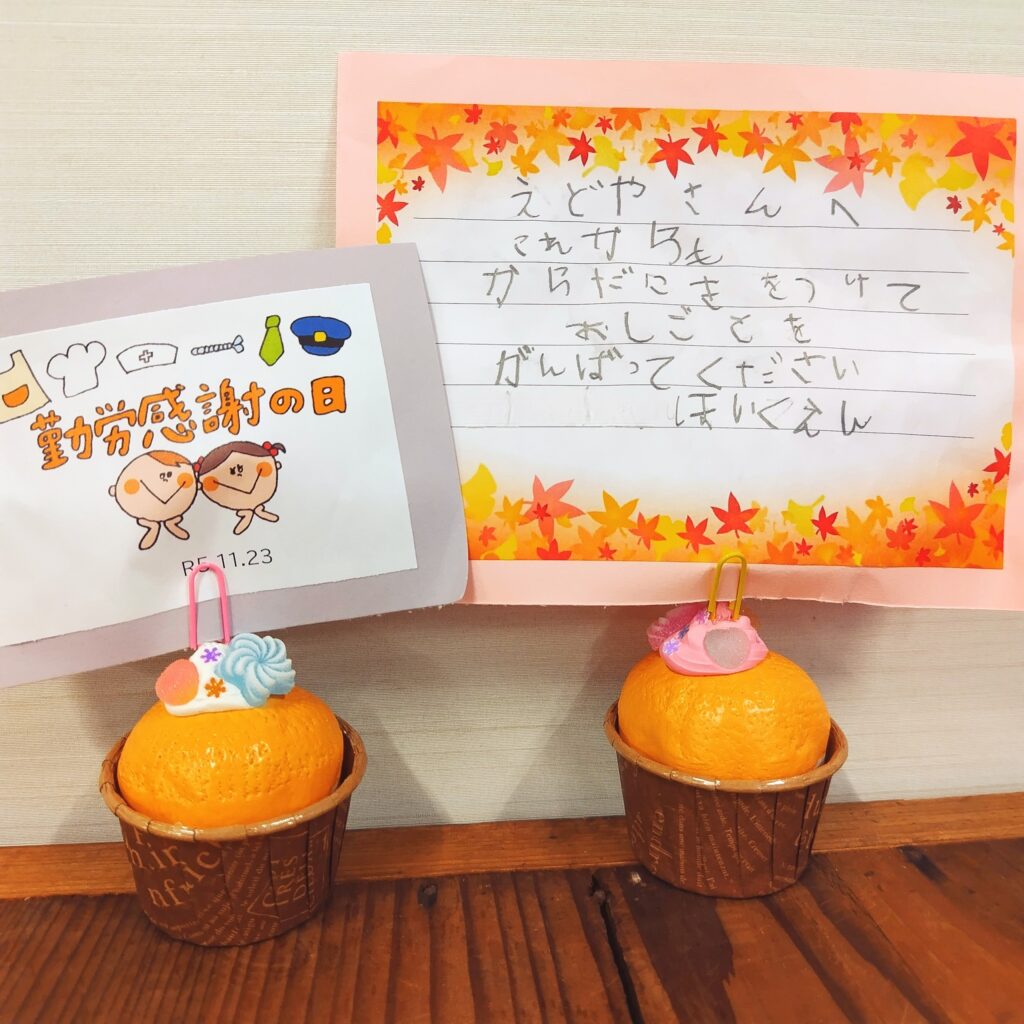 勤労感謝の日
R5.11.23
えどやさんへ
これからも
からだにきをつけて
おしごとを
がんばってください
ほいくえん